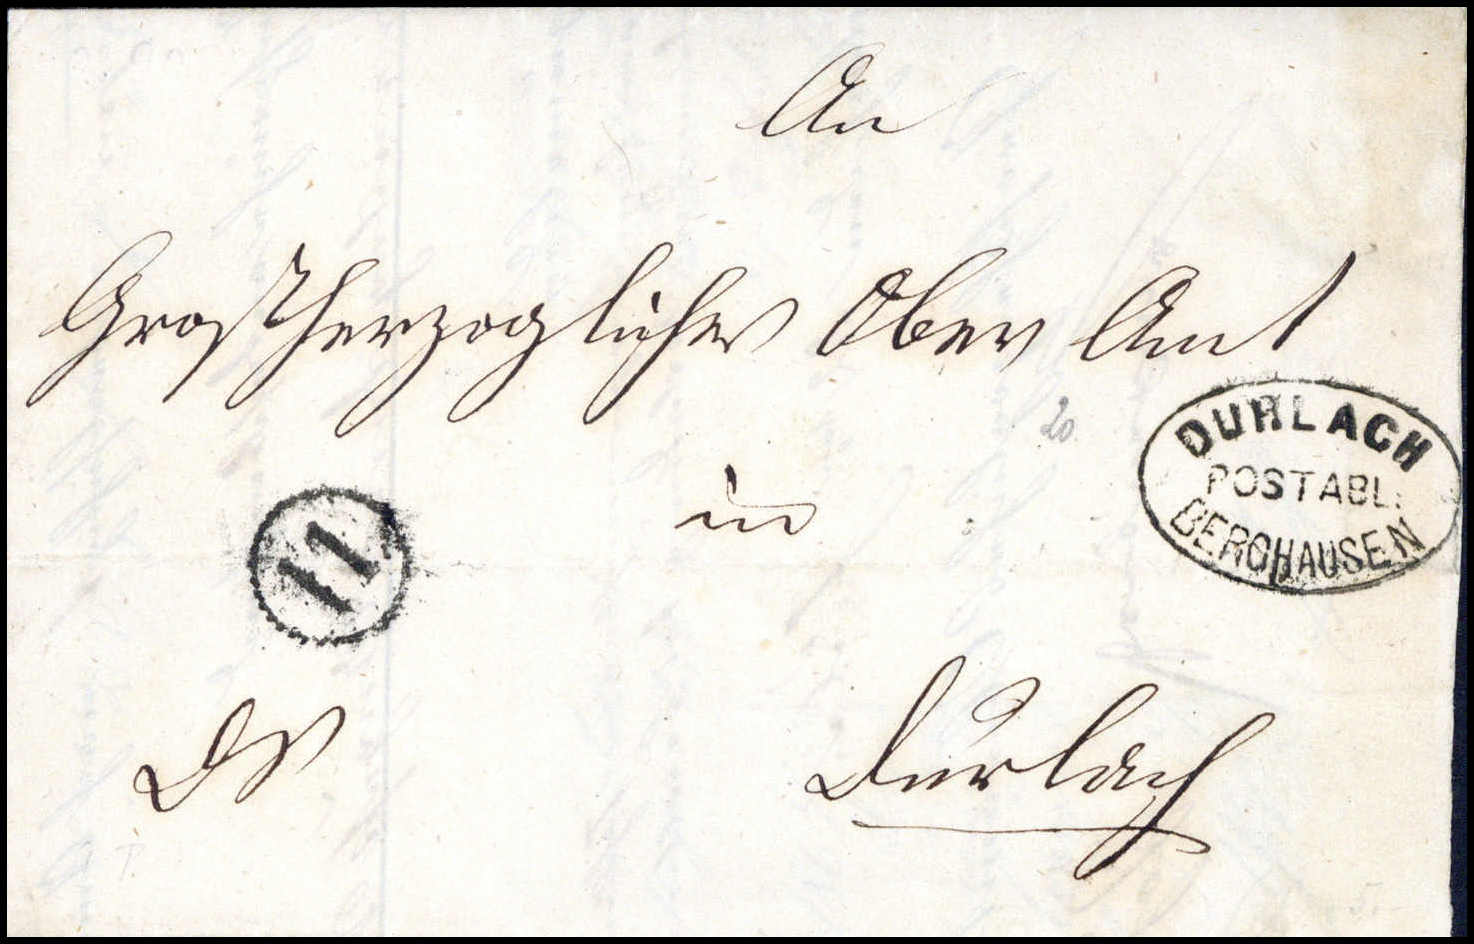 An
Großherzogliches Ober Amt
20
DURLACH
POSTABL:
BERGHAUSEN
in
11
DS
Durlach
5.-